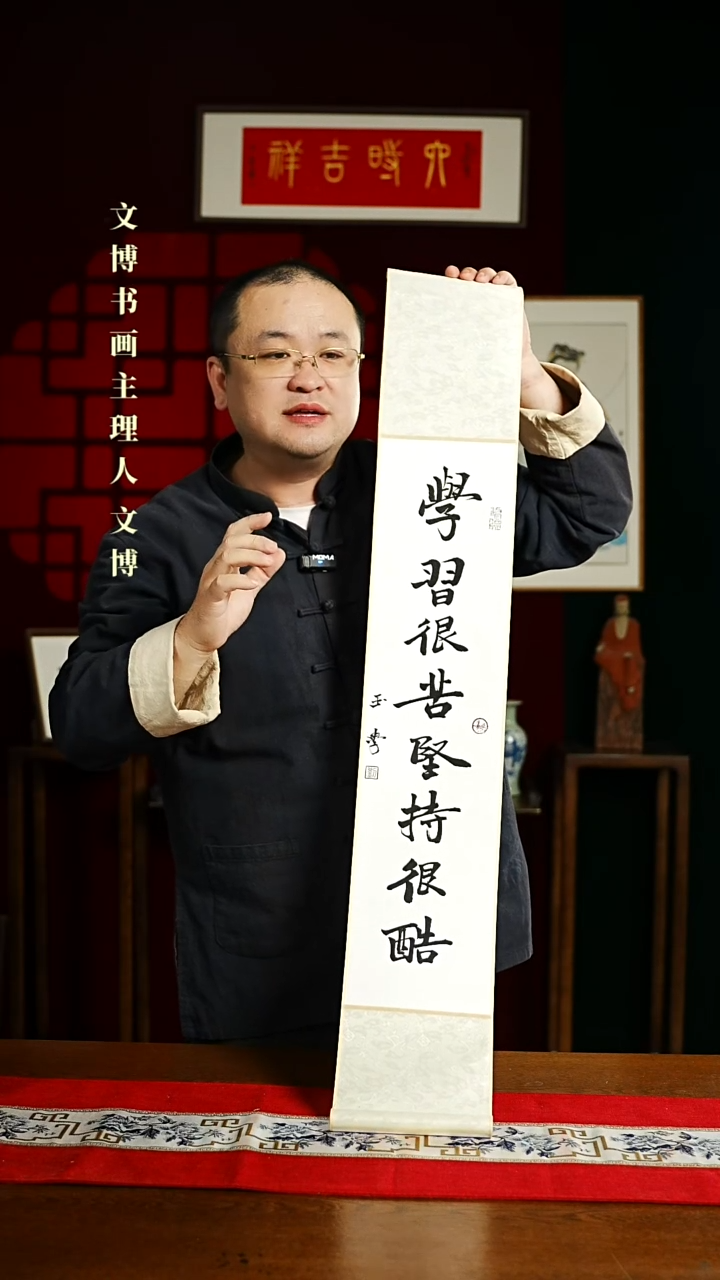 六時吉祥
文博书画主理人文博
學習很苦堅持很酷
玉學
MOMA